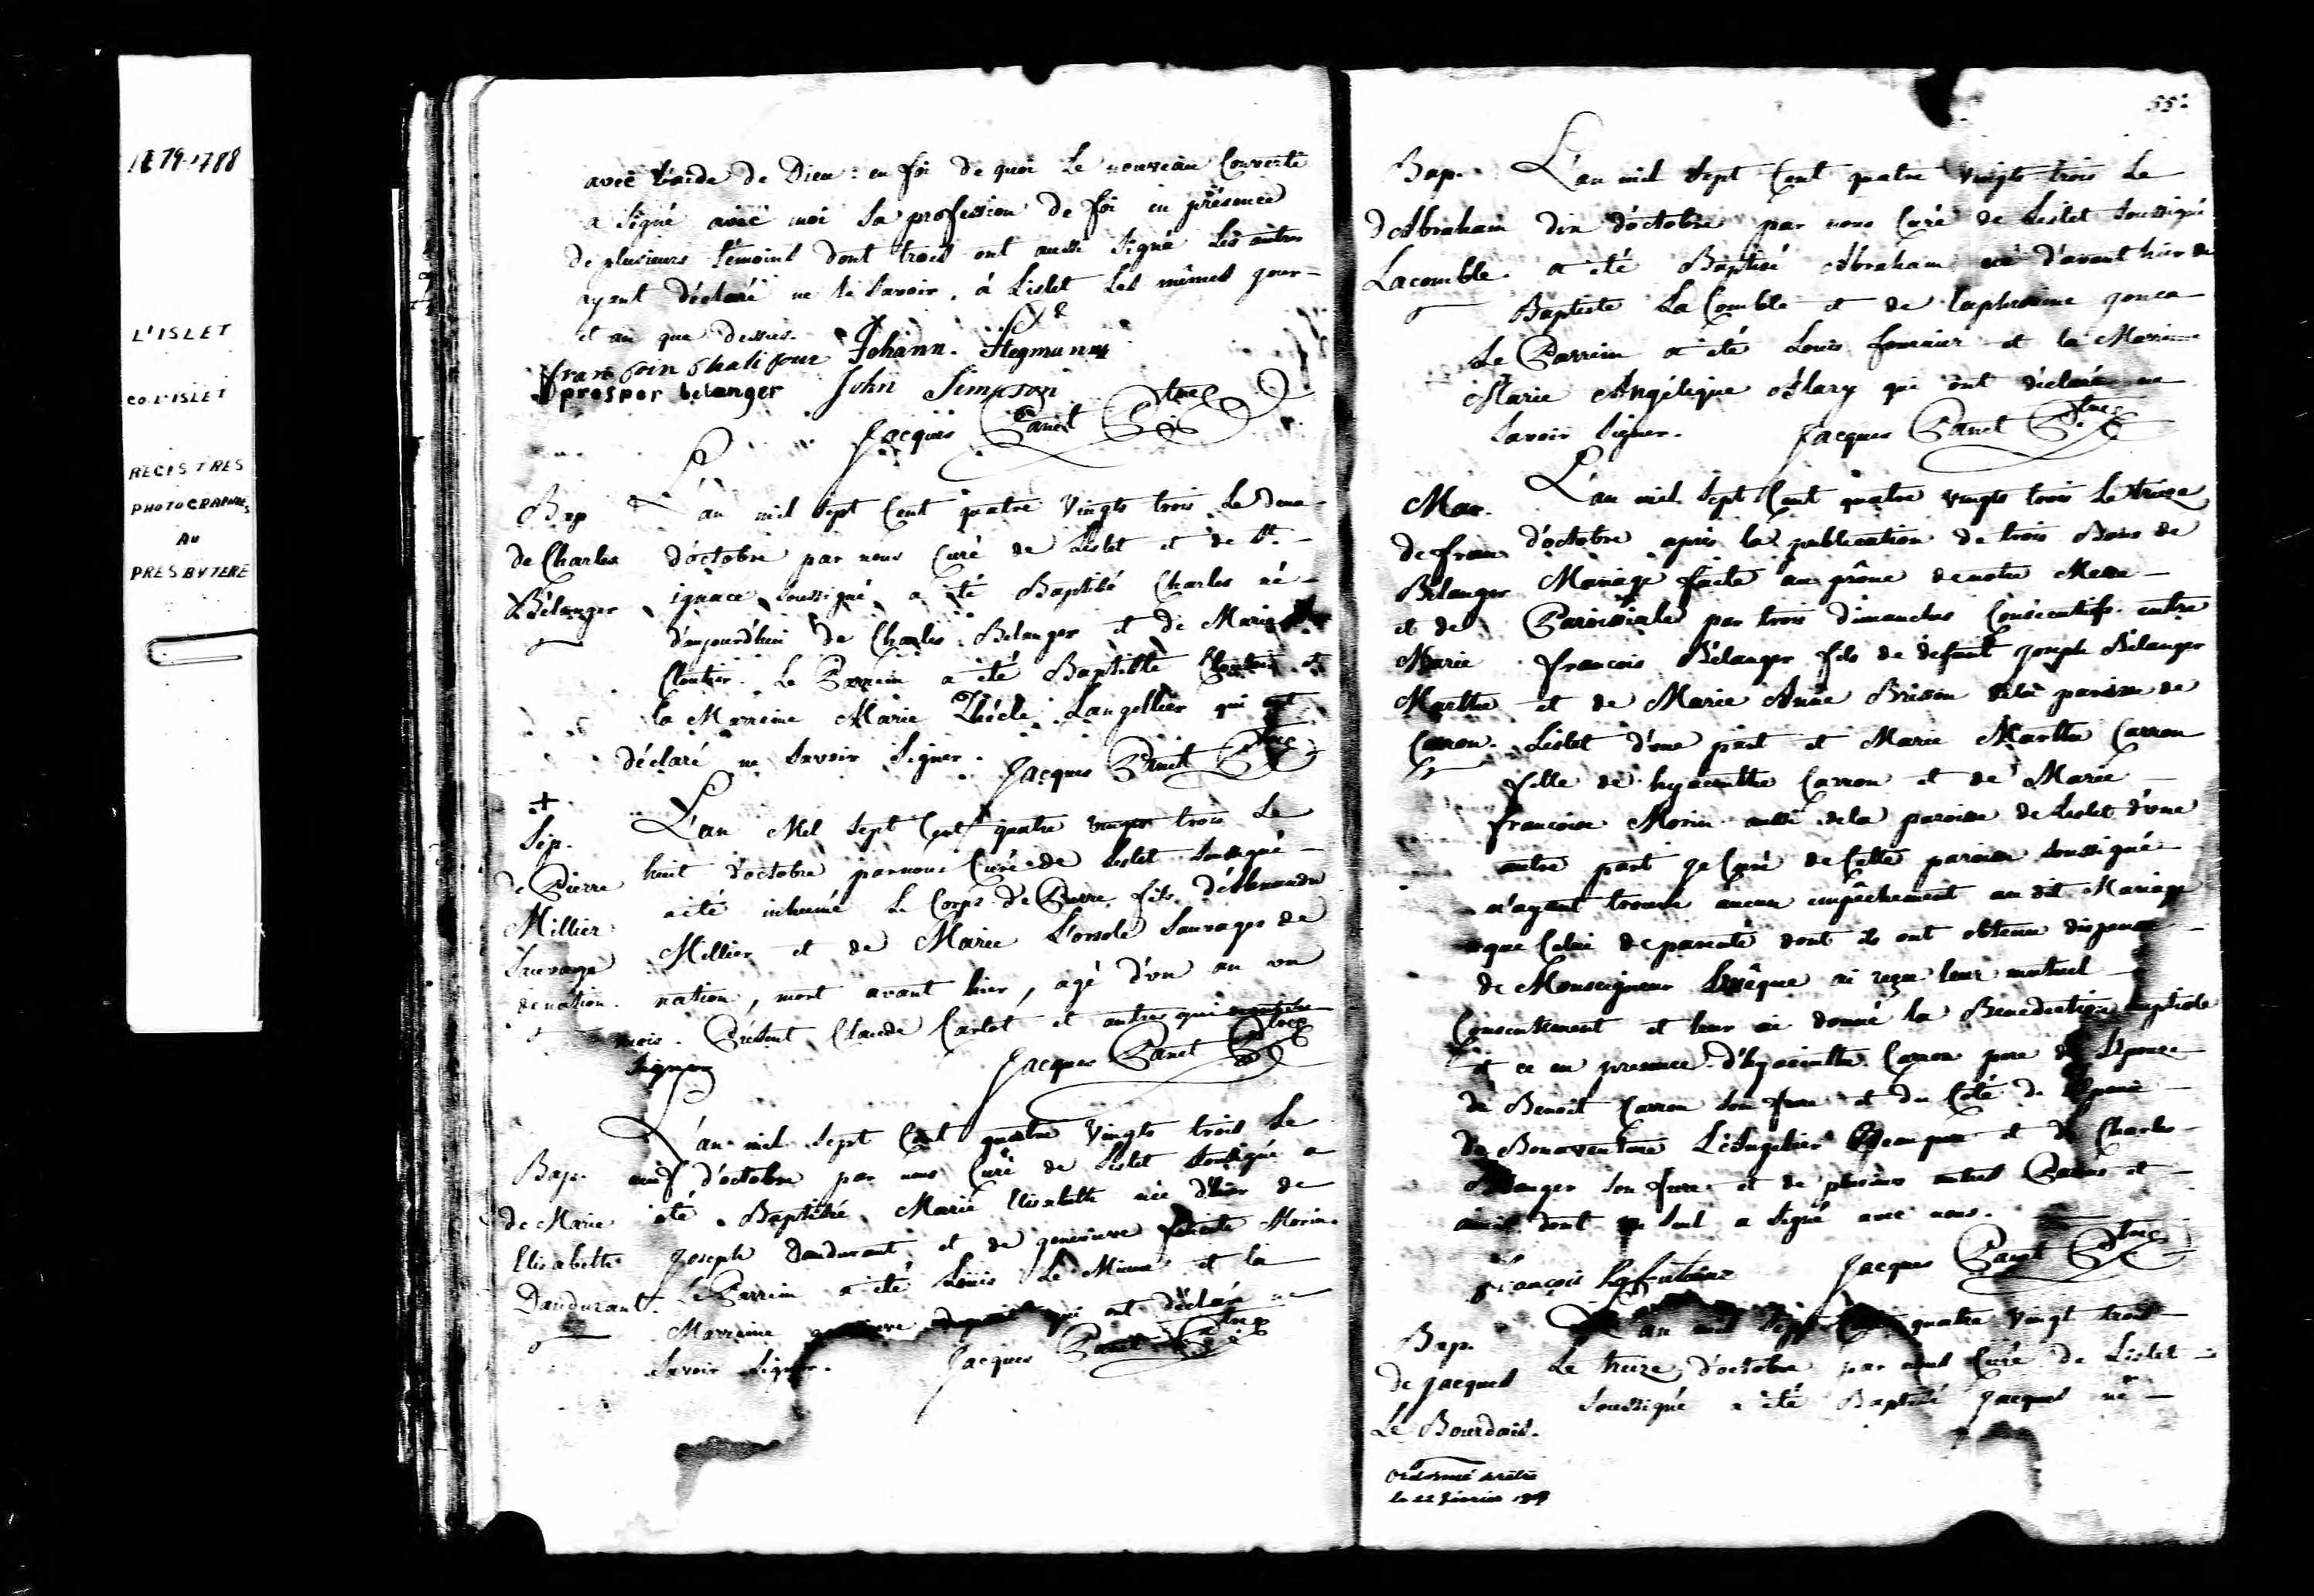 1779-1788
L'ISLET
CO L'ISLET
REGISTRES
PHOTOGRAPHIES
AU
PRESBYTERE
avec l'aide de Dieu : en foi de quoi Le nouveau Converti
a Signé avec moi Sa profession de foi en présence
de plusieurs témoins dont trois ont aussi Signé Les autres
ayant déclaré ne le Savoir, à Lislet Les mêmes jour
et an que dessus.
Johann. Stegmann
prosper belanger John Simpson
Jacques Panet Ptre
Bap
de Charles
Bélanger
L'an mil Sept Cent quatre Vingts trois Le deux
d'octobre par nous Curé de Lislet et de St.
ignace Soussigné a été Baptisé Charles né
d'aujourd'hui de Charles Belanger et de Marie
Cloutier. Le Parrein a été Baptiste Cloutier et
la Marreine Marie Thécle Langellier qui ont
déclaré ne Savoir Signer.
Jacques Panet Ptre
+
Sep.
de Pierre
Millier
Sauvage
de nation.
L'an Mil Sept Cent quatre vingts trois Le
huit d'octobre par nous Curé de Lislet Soussigné
a été inhumé Le Corps de Pierre fils
Millier et de Marie Sauvages de
nation, mort avant hier, agé d'un an un
mois. Présent Claude Carlot et autres qui
Signer
Jacques Panet Ptre
Bap.
de Marie
Elisabette
Dandurant.
L'an mil Sept Cent quatre Vingts trois Le
neuf d'octobre par nous Curé de Lislet Soussigné a
été Baptisée Marie Elisabette née d'hier de
Joseph Dandurant et de genevieve Morin.
Le Parrein a été Louis Le Mieux et la
Marreine qui ont déclaré ne
Savoir Signer.
Jacques Panet Ptre
55.
Bap.
d'Abraham
Lacomble.
L'an mil Sept Cent quatre Vingts trois Le
dix d'octobre par nous Curé de Lislet Soussigné
a été Baptisé Abraham né d'avant hier de
Baptiste La Comble et de
Le Parrein a été Louis fournier et la Marreine
Marie Angélique qui ont déclaré ne
Savoir Signer.
Jacques Panet Ptre
Mar.
de fran.
Bélanger
et de
Marie
Marthe
Carron.
L'an mil Sept Cent quatre vingts trois Le treize
d'octobre après la publication de trois Bans de
Mariage faite au prône de notre Messe
Paroissiale par trois dimanches Consécutifs entre
françois Bélanger fils de défunt joseph Bélanger
et de Marie Anne Brisson de la paroisse de
Lislet d'une part et Marie Marthe Carron
fille de hyacinthe Carron et de Marie
francoise Morin aussi de la paroisse de Lislet d'une
autre part je Curé de Cette paroisse Soussigné
n'ayant trouvé aucun empêchement au dit Mariage
que Celui de parenté dont ils ont obtenu dispense
de Monseigneur L'évêque ai reçu leur mutuel
Consentement et leur ai donné la Benediction nuptiale
et ce en presence d'hyacinthe Carron pere de L'epouse
de Benoit Carron Son frere et du Coté de
de Bonaventure L'Angelier Beaupere et de Charles
Bélanger Son frere et de plusieurs autres Parens et
amis dont un Seul a Signé avec nous.
Jacques Panet Ptre
Bap.
de jacques
Le Bourdais.
L'an mil Sept Cent quatre Vingt trois
Le treize d'octobre par nous Curé de Lislet
Soussigné a été Baptisé jacques né